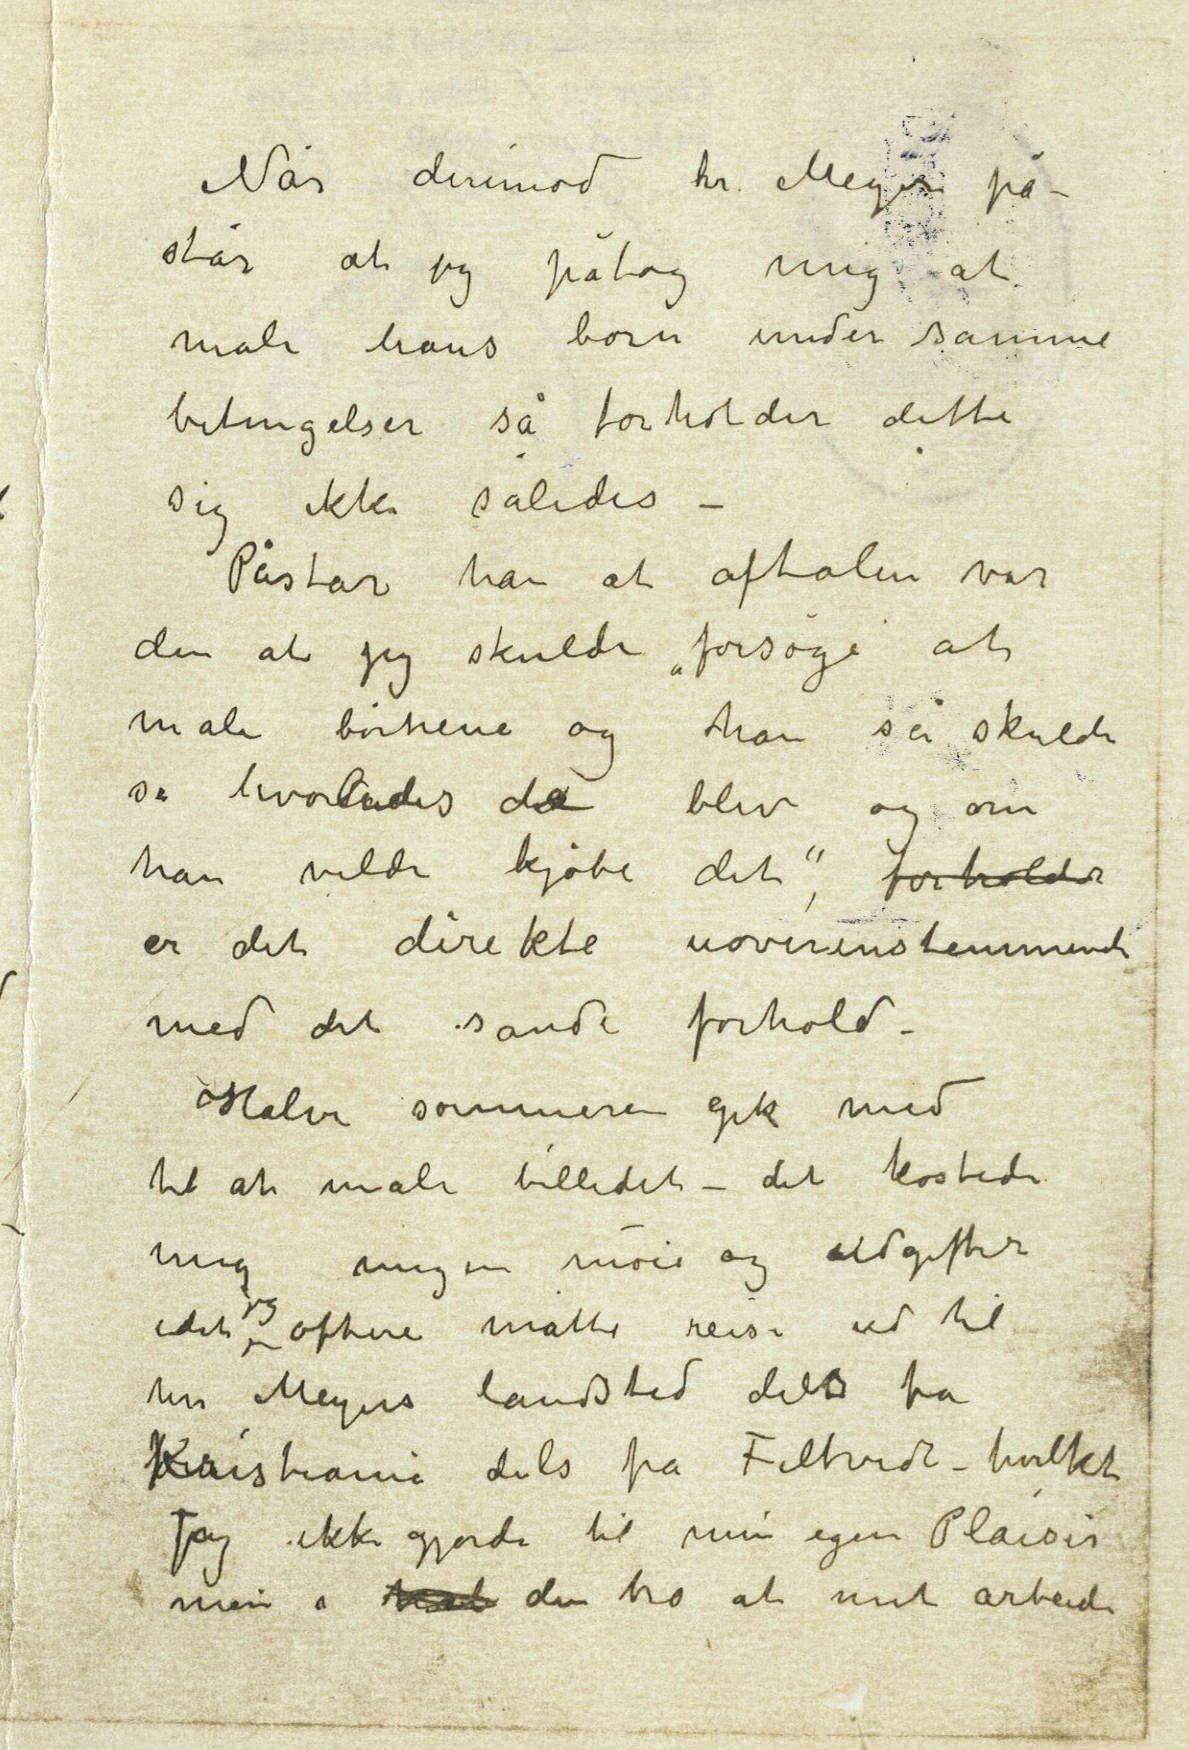 Når derimod hr. Meyer på-
står at jeg påtog mig at
male hans børn under samme
betingelser så forholder dette
sig ikke således –
Påstår han at aftalen var
den at jeg skulde „forsøge at
male børnene og han så skulde
se hvorledes de blev og om
han vilde kjøbe det“, forholder
er det direkte uoverensstemmende
med det sande forhold –
Halve sommeren gik med
til at male billedet – det kostede
mig megen møie og udgifter
idet jeg oftere måtte reise ud til
hr Meyers landsted dels fra
Kristiania dels fra Filtvedt – hvilket
jeg ikke gjorde til min egen Plaisir
men i den tro at mit arbeide